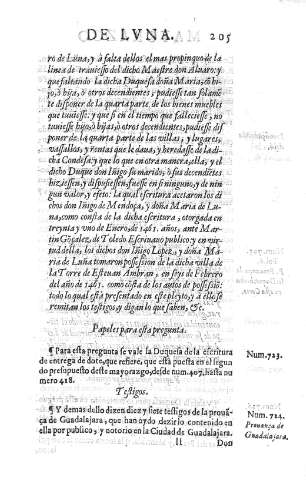 DE LVNA. 205
ro de Luna, y à falta dellos el mas propinquo de la
linea de trauiesso del dicho Maestre don Aluaro: y
que faltando la dicha Duquesa doña Maria, ò hi-
jo, ò hija, ò otros decendientes, pudiesse tan solame
te disponer de la quarta parte, de los bienes muebles
que tuuiesse: y que si en el tiempo que falleciesse, no
tuuiesse hijo, ò hijas, ò otros decendientes, pudiesse dis
poner de la quarta parte de las villas, y lugares,
vassallos, y rentas que le daua, y heredasse de la di-
cha Condesa: y que lo que en otra manera, ella, y el
dicho Duque don Iñigo su marido, ò sus decendietes
hiziessen, y dispusiessen, fuesse en si ninguno, y de nin
gun valor, y efeto: la qual escritura acetaron los di
chos don Iñigo de Mendoça, y doña Maria de Lu-
na, como consta de la dicha escritura, otorgada en
treynta y vno de Enero, de 1461. años, ante Mar-
tin Gõçalez, de Toledo Escriuano publico: y en vir
tud della, los dichos don Iñigo Lopez, y doña Ma-
ria de Luna tomaron possession de la dicha villa de
la Torre de Esteuan Ambran, en seys de Febrero
del año de 1461. como cõsta de los autos de possessiõ:
todo lo qual està presentado en este pleyto, y a ello se
remitan los testigos, y digan lo que saben, &c.
Papeles para esta pregunta.
¶ Para esta pregunta se vale la Duquesa de la escritura
de entrega de dote, que refiere, que està puesta en el segun
do presupuesto deste mayorazgo, desde num. 407, hasta nu
mero 418.
Num. 723.
Testigos.
¶ Y demas dello dizen diez y siete testigos de la prouã-
ça de Guadalajara, que han oydo dezir lo contenido en
ella por publico, y notorio en la Ciudad de Guadalajara.
Num. 724.
Prouança de
Guadalajara.
Ll Don